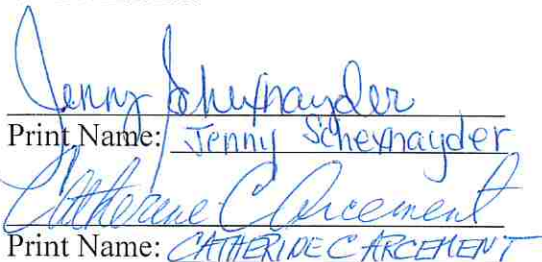 Jenny Schexnayder
Print Name: Jenny Schexnayder
Catherine C Arcement
Print Name: CATHERINE C ARCEMENT